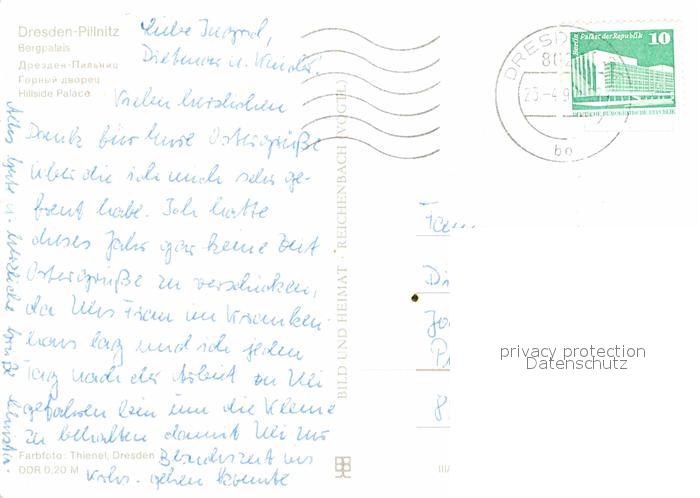 Dresden-Pillnitz
Bergpalais
Дрезден-Пильниц
Горный дворец
Hillside Palace
Liebe Ingrid,
Dietmar u. Kinder,
Vielen herzlichen
Dank für Eure Ostergrüße
über die ich mich sehr ge-
freut habe. Ich hatte
dieses Jahr gar keine Zeit
Ostergrüße zu verschicken,
da Ulis Frau im Kranken-
haus lag und ich jeden
Tag nach der Arbeit zu Uli
gefahren bin um die Kleine
zu behalten damit Uli zur
Besuchszeit ins
Krhs. gehen konnte
Alles Gute u. herzliche Grüße
Farbfoto: Thienel, Dresden
DDR 0,20 M
BILD UND HEIMAT · REICHENBACH (VOGTL)
III/
DRESD
802
23.-4.9
bo
Berlin Palast der Republik
10
DEUTSCHE DEMOKRATISCHE REPUBLIK
Fam.
Di
Jo
P
8
privacy protection
Datenschutz